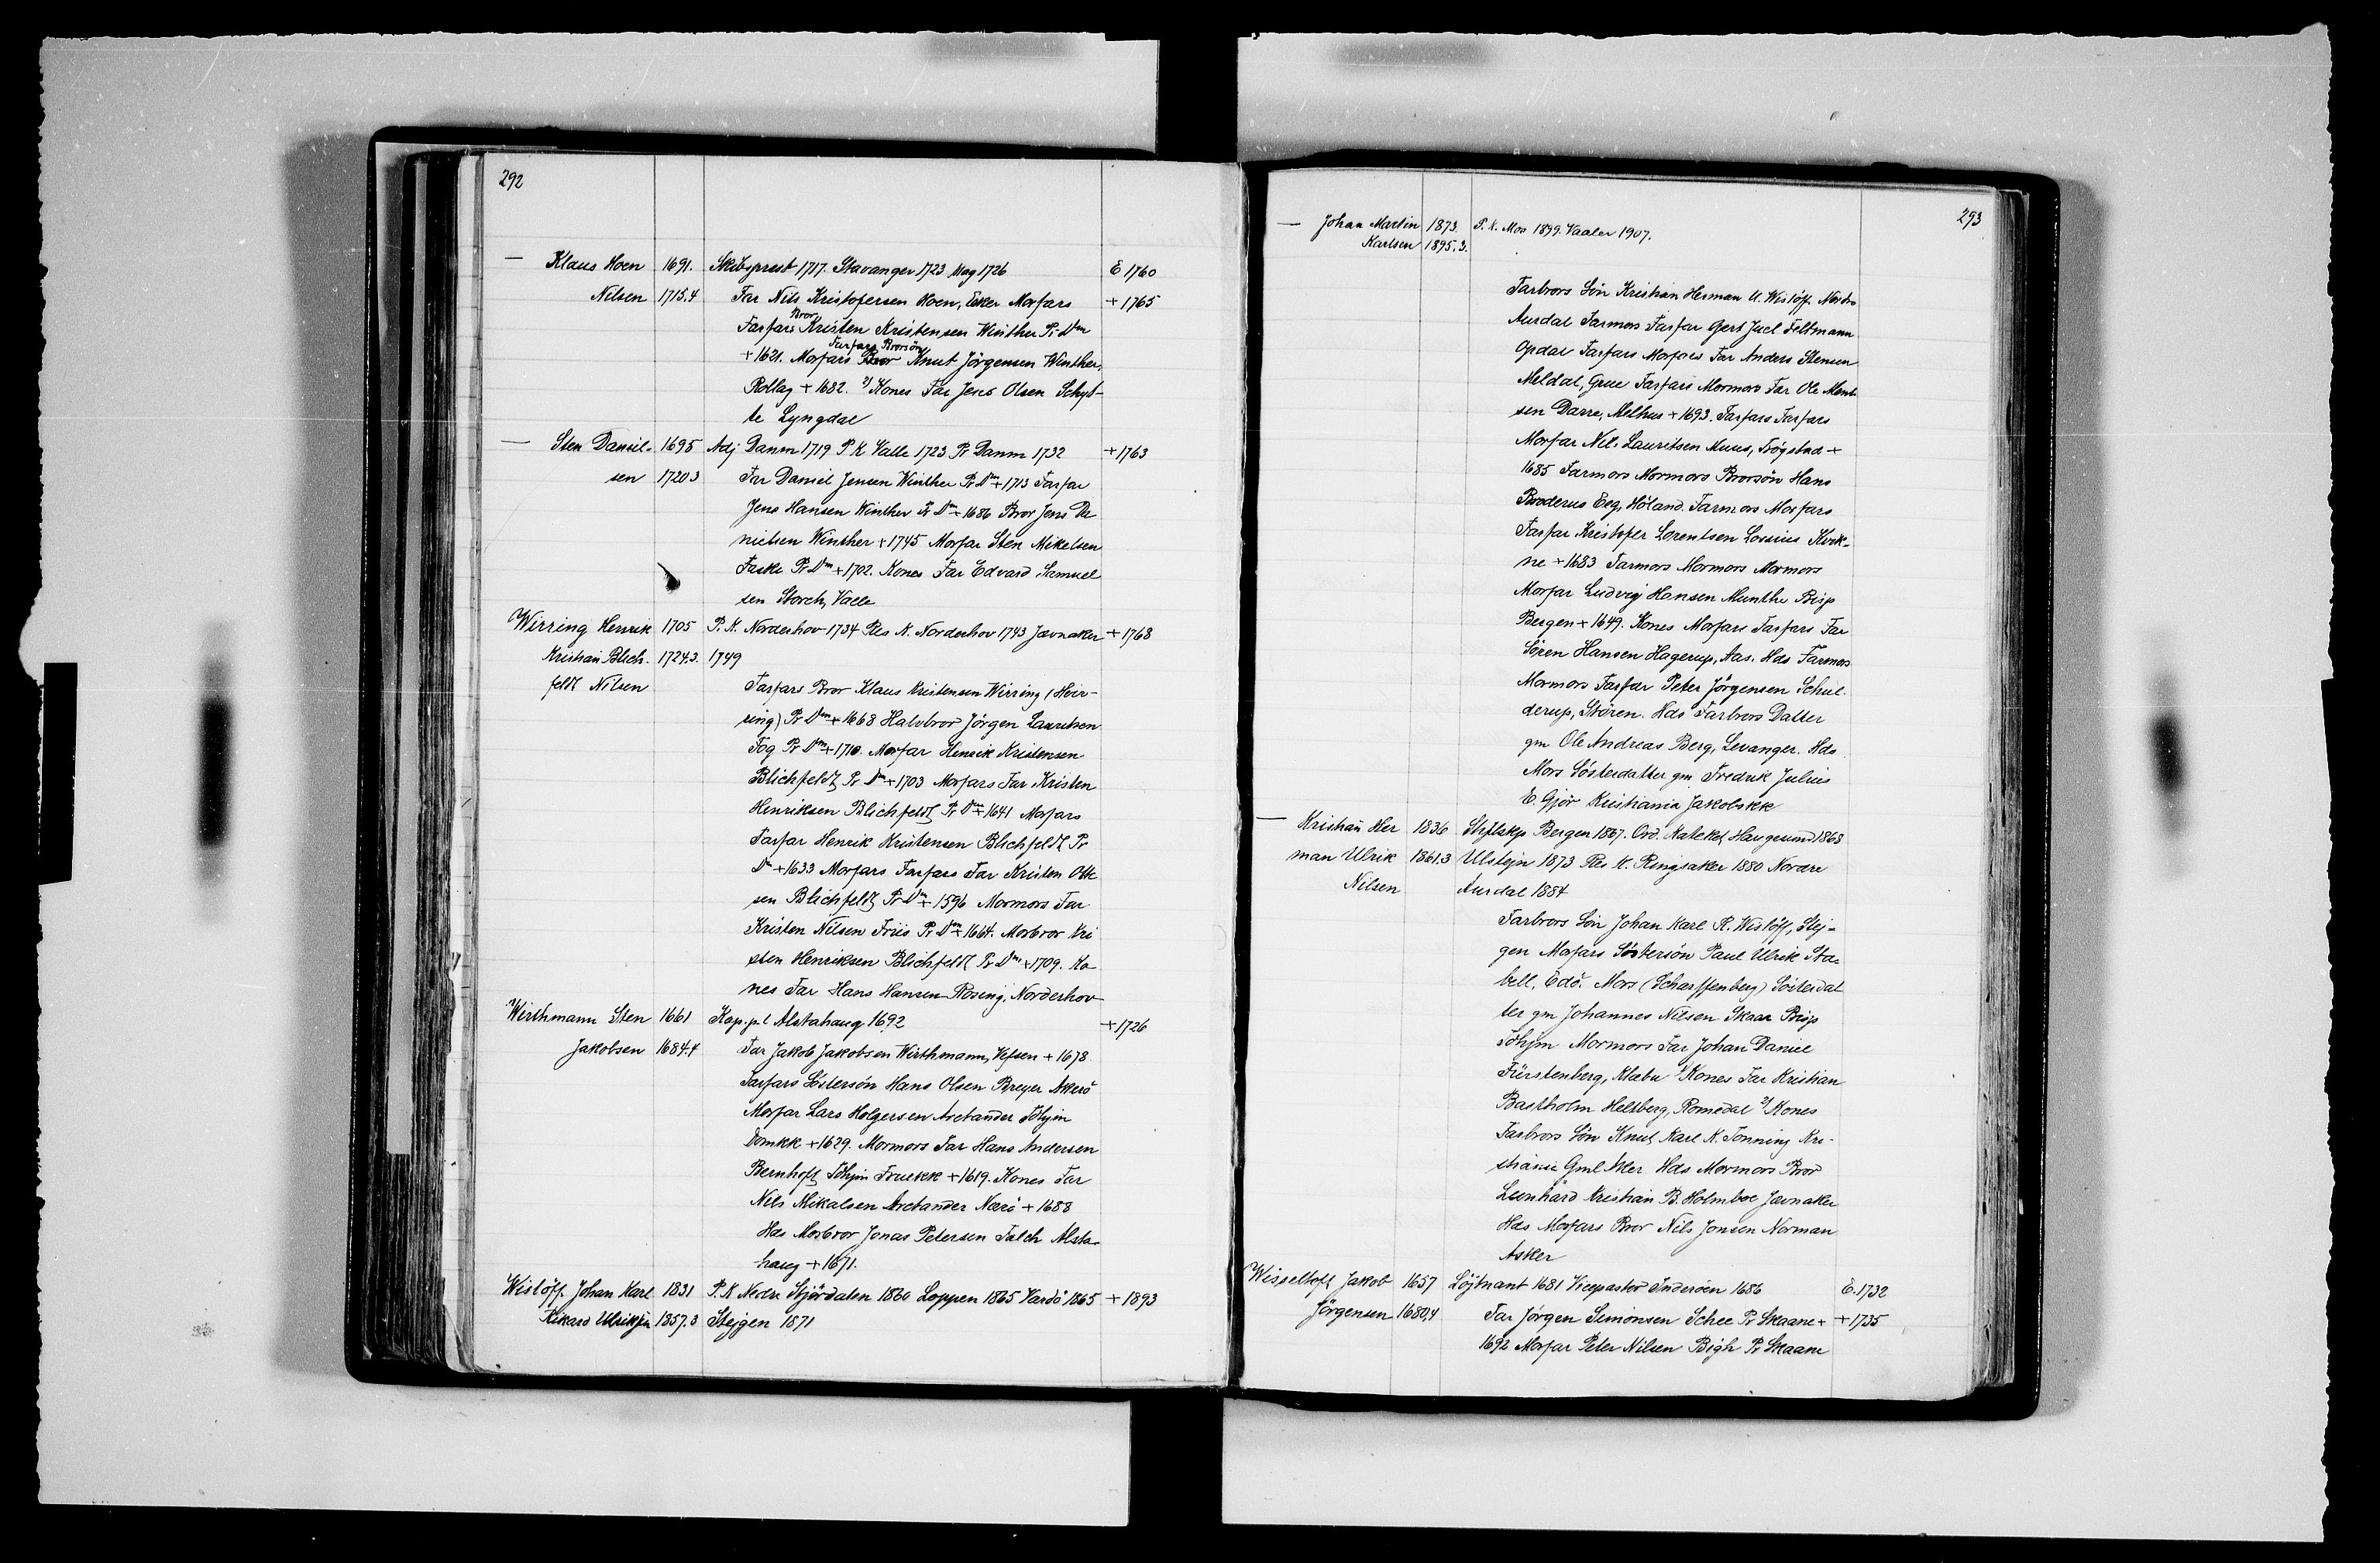 292
— Klaus Hoen 1691. Skibsprest 1717. Stavanger 1723 Mag 1726 E 1760
Nilsen 1715.4 Far Nils Kristofersen Hoen, Eker Morfars + 1765
Farfars Bror Kristen Kristensen Winther Pr Dm
+ 1621. Morfars Farfars Brorsön Knut Jörgensen Winther,
Rollag + 1682. 2) Kones Far Jens Olsen Schyt-
te Lyngdal
— Sten Daniel- 1695 Adj Danm 1719 P K Valle 1723 Pr Danm 1732 + 1763
sen 1720.3 Far Daniel Jensen Winther Pr Dm + 1713 Farfar
Jens Hansen Winther Pr Dm + 1686 Bror Jens Da
nielsen Winther + 1745 Morfar Sten Mikelsen
Faski Pr Dm + 1702. Kones Far Edvard Samuel
sen Storch, Valle
Wirring Henrik 1705 P. K. Norderhov 1734 Res K. Norderhov 1743 Jævnaker + 1768
Kristian Blich. 1724.3. 1749
feldt Nilsen Farfars Bror Klaus Kristensen Wirring (Hvir-
ring) Pr Dm + 1668 Halvbror Jörgen Lauritsen
Fog Pr Dm + 1710. Morfar Henrik Kristensen
Blichfeldt Pr Dm + 1703 Morfars Far Kristen
Henriksen Blichfeldt Pr Dm + 1641 Morfars
Farfar Henrik Kristensen Blichfeldt Pr
Dm + 1633 Morfars Farfars Far Kristen Otte
sen Blichfeldt Pr Dm + 1596 Mormors Far
Kristen Nilsen Friis Pr Dm + 1664. Morbror Kri
sten Henriksen Blichfeldt Pr Dm + 1709. Ko
nes Far Hans Hansen Rosing, Norderhov
Wirthmann Sten 1661 Kap. p. l Alstahaug 1692 + 1726
Jakobsen 1684.4 Far Jakob Jakobsen Wirthmann, Vefsen + 1678
Farfars Söstersön Hans Olsen Breyer Akerö
Morfar Lars Holgersen Arctander Tthjm
Domkk + 1629. Mormors Far Hans Andersen
Bernhoft Tthjm Fruekk + 1619. Kones Far
Nils Mikalsen Arctander Nærö + 1688
Hds Morbror Jonas Petersen Falch Alsta-
haug + 1671.
Wislöff Johan Karl 1831 P. K Nedre Stjördalen 1860 Loppen 1865 Vardö 1865 + 1893
Rikard Ulrikjn 1857.3 Stejgen 1871
293
— Johan Martin 1873. P. K. Mos 1899. Vaaler 1907.
Karlsen 1895.3.
Farbrors Sön Kristian Herman U. Wislöff Nordre
Aurdal Farmors Farfar Gert Juel Feltmann
Opdal Farfars Morfars Far Anders Stensen
Meldal, Grue Farfars Mormors Far Ole Ment
sen Darre, Melhus + 1693. Farfars Farfars
Morfar Nil. Lauritsen Muus, Trögstad +
1685 Farmors Mormors Brorsön Hans
Broderus Eeg, Höland. Farmors Morfars
Farfar Kristofer Lorentsen Lossius Kvik-
ne + 1683 Farmors Mormors Mormors
Morfar Ludvig Hansen Munthe Bisp
Bergen + 1649. Kones Morfars Farfars Far
Sören Hansen Hagerup, Aas. Hds Farmors
Mormors Farfar Peter Jörgensen Schiel-
derup, Stören. Hds Farbrors Datter
gm Ole Andreas Berg, Levanger. Hds
Mors Sösterdatter gm Fredrik Julius
E. Gjör Kristiania Jakobskk
— Kristian Her 1836 Stiftskp Bergen 1867. Ord. Katekel Haugesund 1868
man Ulrik 1861.3 Ulstejn 1873 Res K. Ringsaker 1880 Nordre
Nilsen Aurdal 1884
Farbrors Sön Johan Karl R. Wislöff, Stej-
gen Morfars Söstersön Paul Ulrik Sta-
bell, Edö. Mors (Scharffenberg) Sösterdat
ter gm Johannes Nilsen Skaar Bisp
Tthjm Mormors Far Johan Daniel
Fürstenberg, Klæbu 1) Kones Far Kristian
Bastholm Heltberg, Romedal 2) Kones
Farbrors Sön Knut Karl K. Tonning Kri-
stiania Gml Aker Hds Mormors Bror
Leonhard Kristian B. Holmboe Jævnaker
Hds Morfars Bror Nils Jonsen Norman
Asker
Wisseltoft Jakob 1657 Löjtnant 1681 Vicepastor Inderöen 1686 E. 1732
Jörgensen 1680.4 Far Jörgen Simonsen Schee Pr Skaane + + 1735
1692 Morfar Peter Nilsen Bigh Pr Skaane